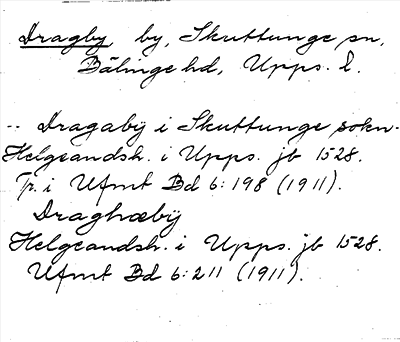 Dragby, by, Skuttunge sn,
Bälinge hd, Upps. l.
-- Dragabÿ i Skuttunge sokn-
Helgeandsh. i Upps. jb 1528.
Tr. i Ufmt Bd 6:198 (1911).
Draghæbÿ
Helgeandsh. i Upps. jb 1528.
Ufmt Bd 6:211 (1911).